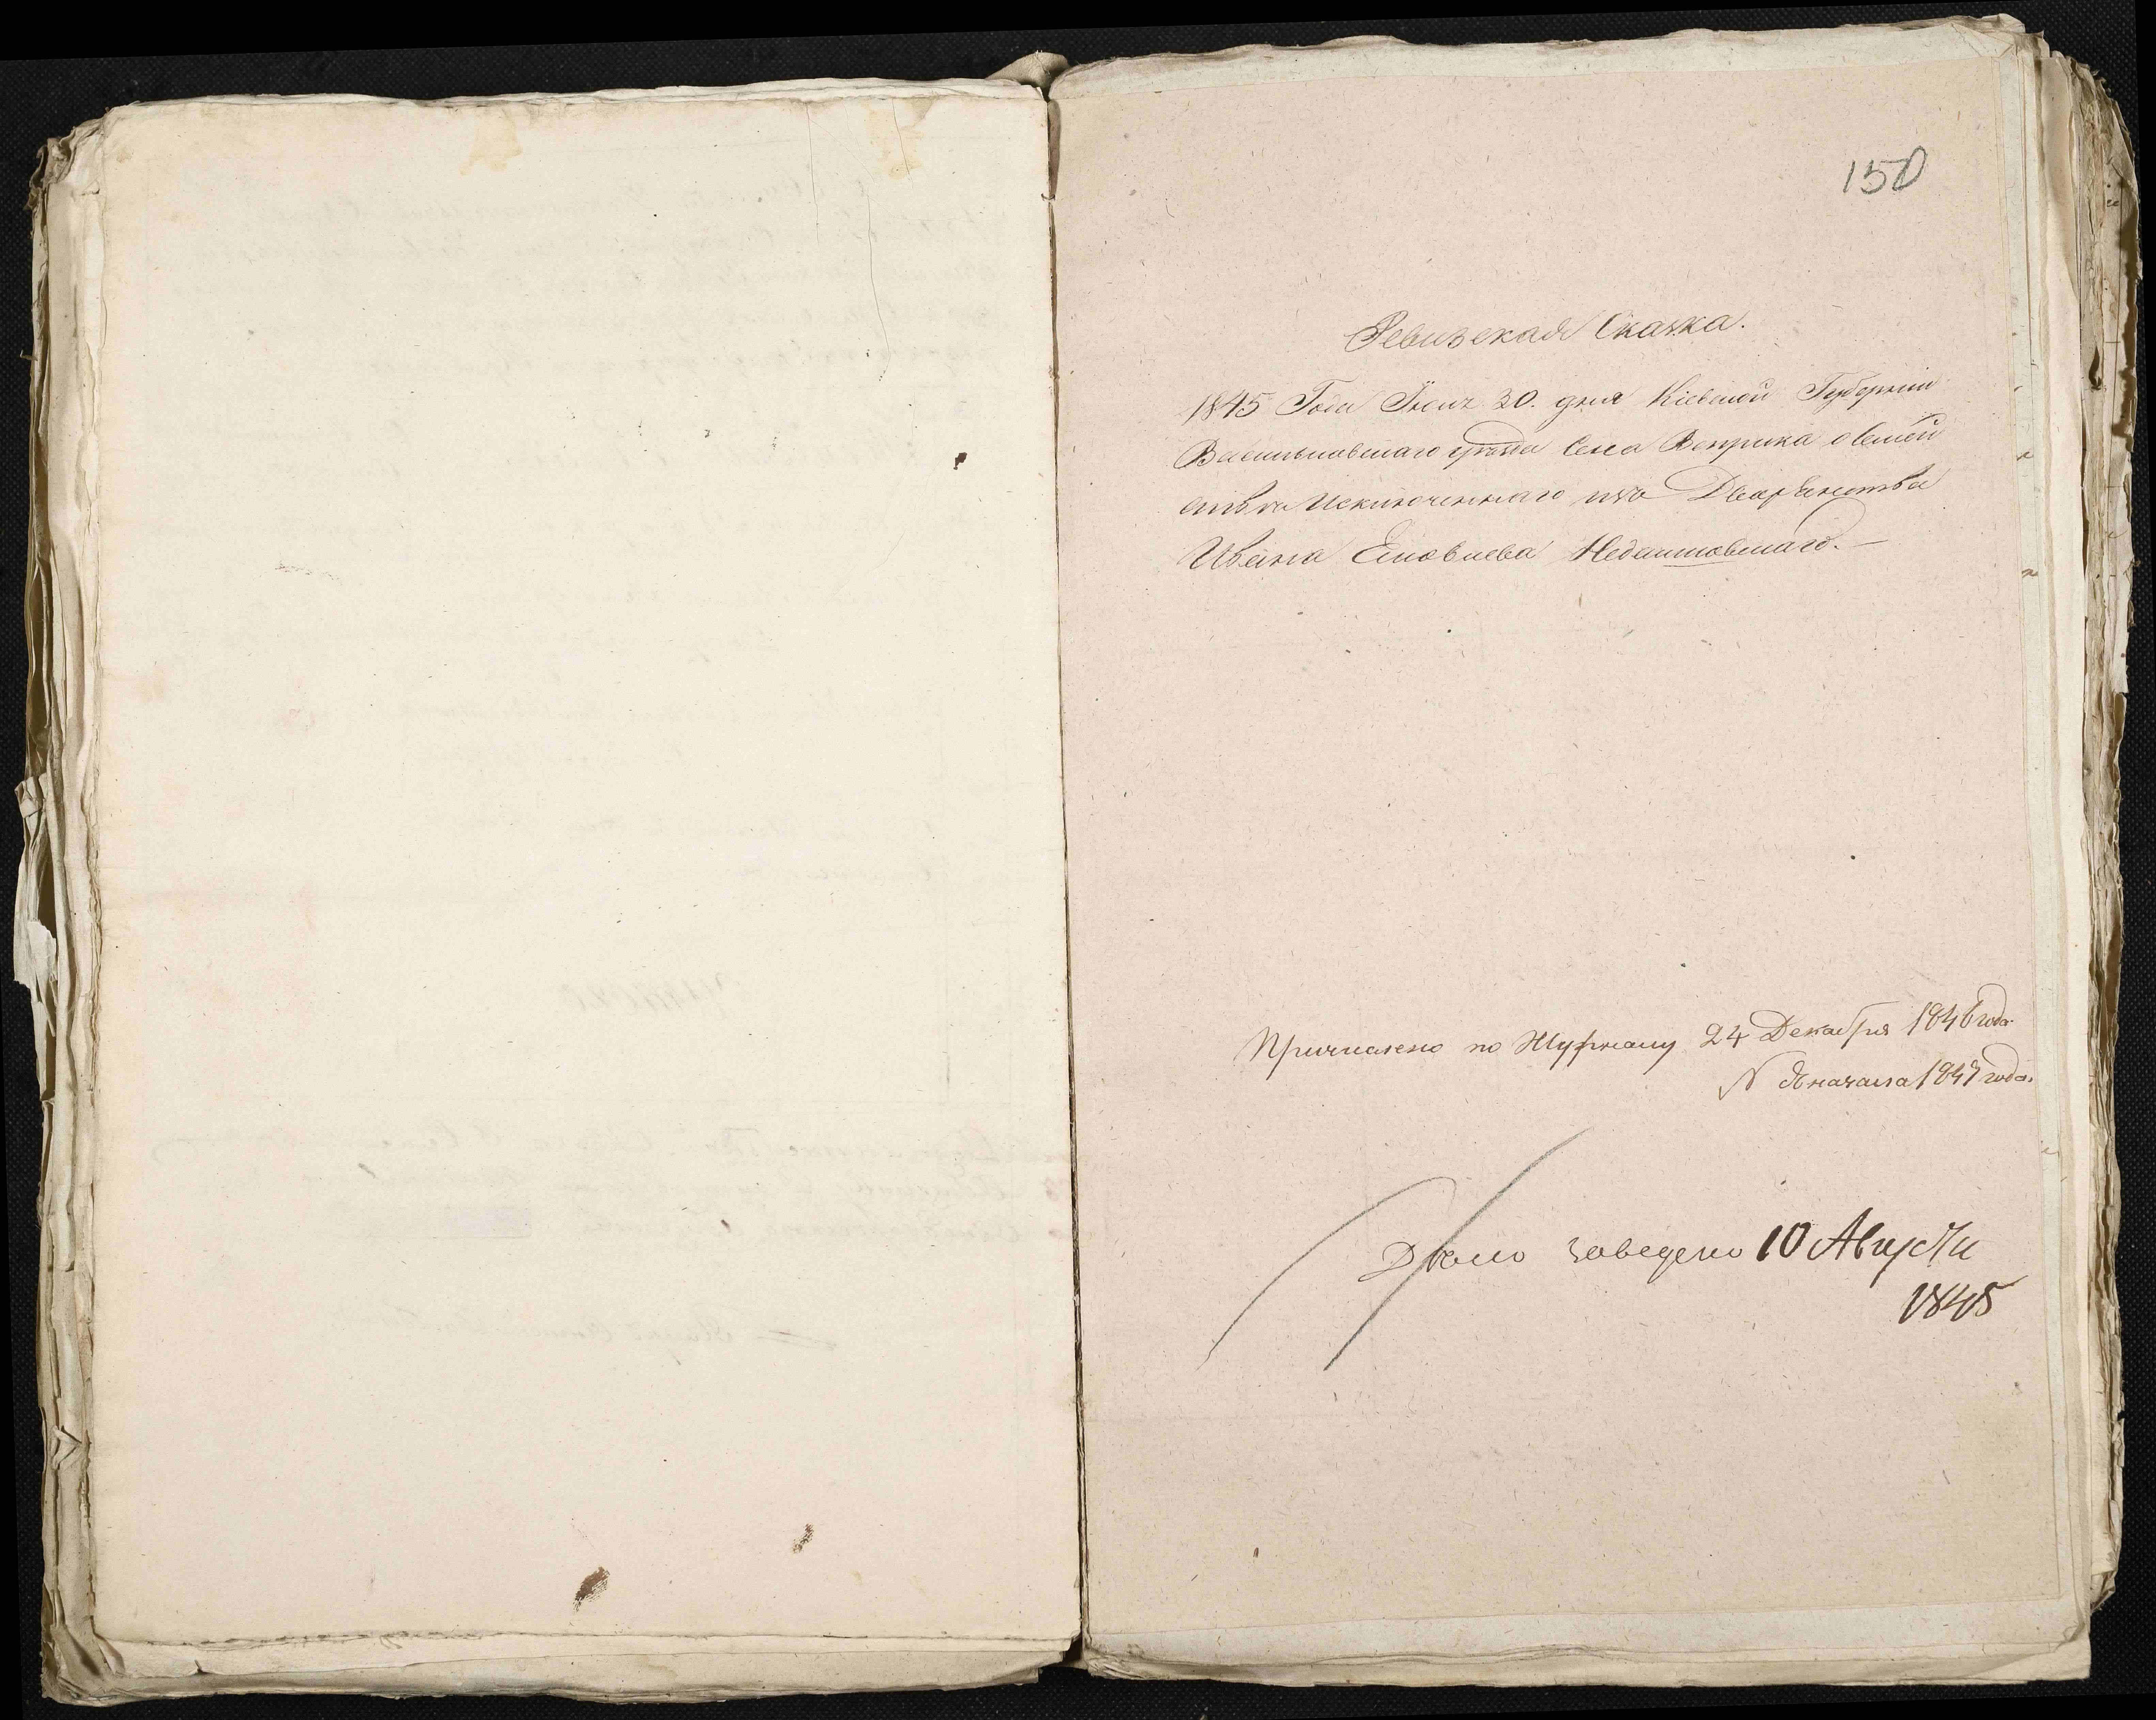 150
Ревизская Сказка.
1845 Года Июня 30. дня Кіевской Губерніи
Васильковскаго уѣзда Села Веприка о семей
ствѣ Исключеннаго изъ Дворянства
Ивана Яковлева Недашковскаго.—
Причислено по Журналу 24 Декабря 1846 года
съ начала 1847 года.
Дѣло заведено 10 Августа
1845